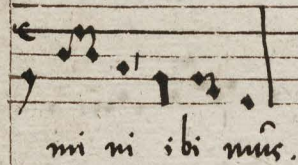 mi ni ibi mus